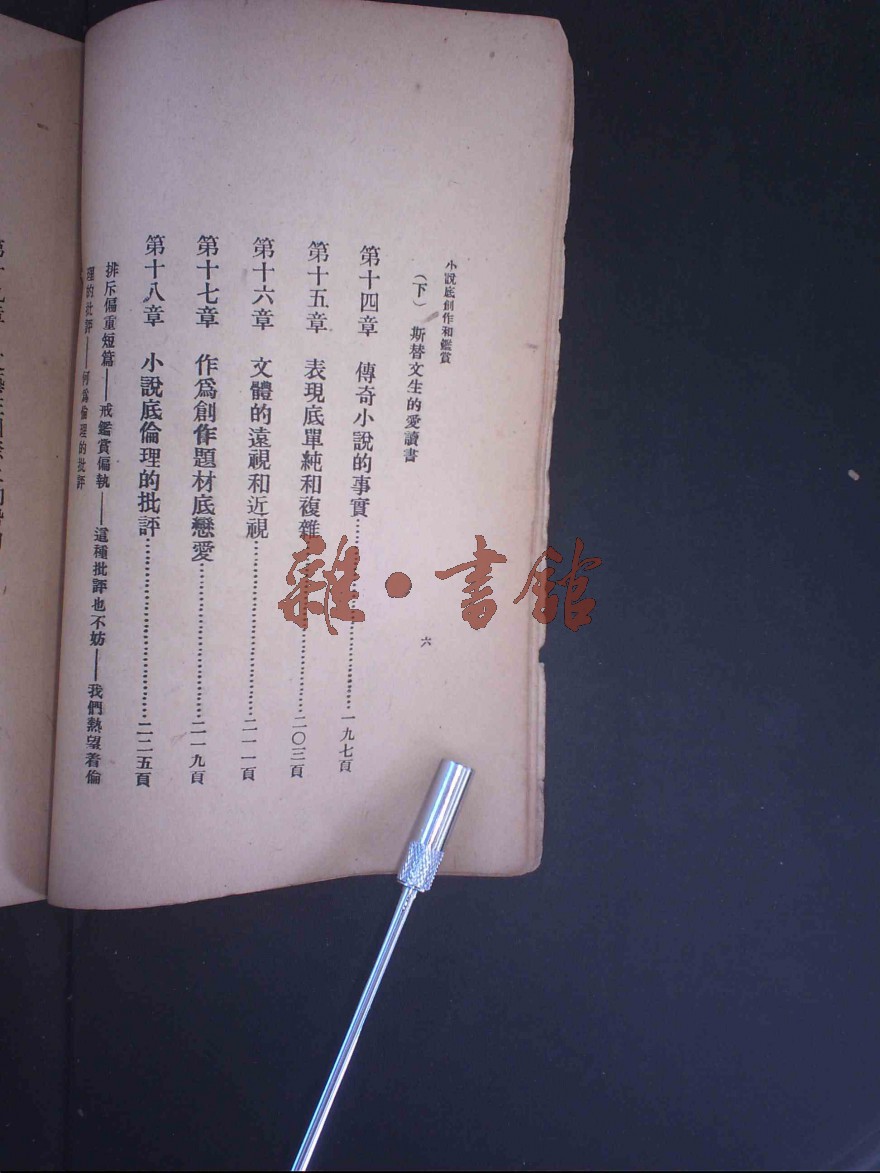 小說底創作和鑑賞
六
（下） 斯替文生的愛讀書
第十四章 傳奇小說的事實……一九七頁
第十五章 表現底單純和複雜……二〇三頁
第十六章 文體的遠視和近視……二一一頁
第十七章 作爲創作題材底戀愛……二一九頁
第十八章 小說底倫理的批評……二二五頁
排斥偏重短篇——戒鑑賞偏執——這種批評也不妨——我們熱望着倫
理的批評——何爲倫理的批評
雜·書館